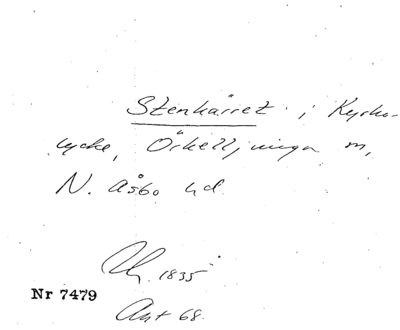 Stenkärret i Kyrko-
lycke, Örkelljunga m,
N. Åsbo hd
1835
Nr 7479
Akt 68.